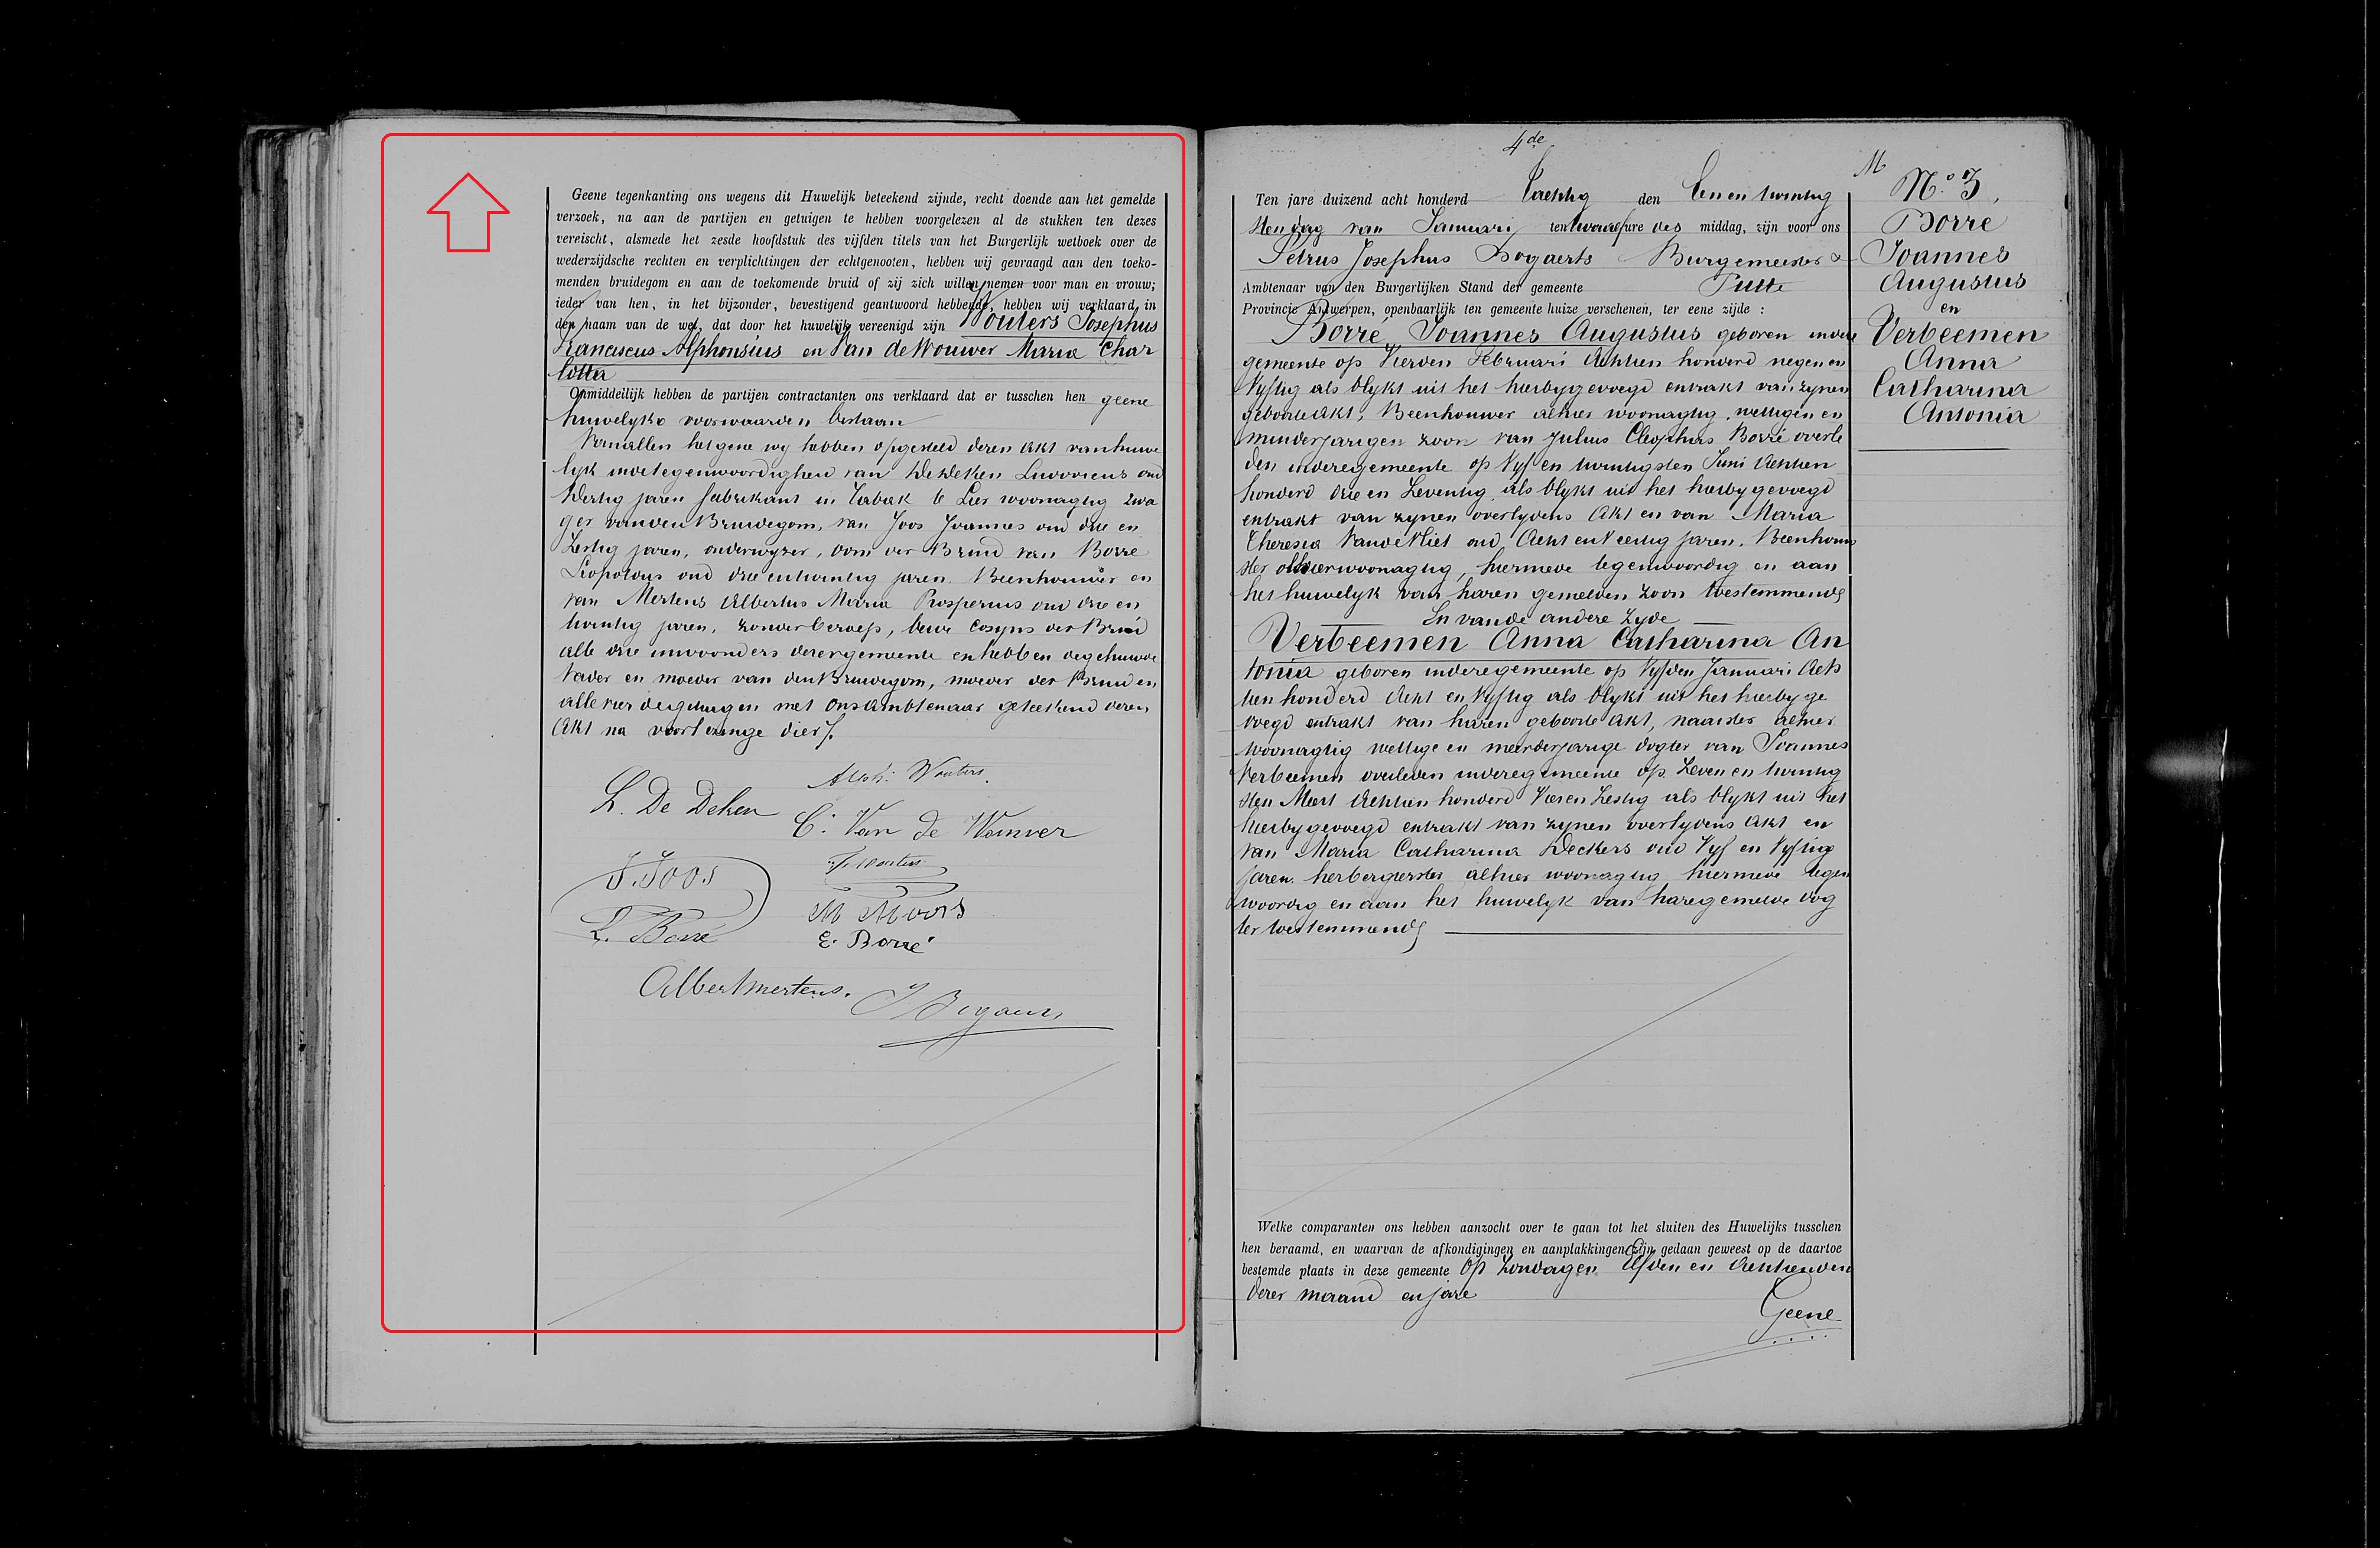 Geene tegenkanting ons wegens dit Huwelijk beteekend zijnde, recht doende aan het gemelde
verzoek, na aan de partijen en getuigen te hebben voorgelezen al de stukken ten dezes
vereischt, alsmede het zesde hoofdstuk des vijfden titels van het Burgerlijk wetboek over de
wederzijdsche rechten en verplichtingen der echtgenooten, hebben wij gevraagd aan den toeko-
menden bruidegom en aan de toekomende bruid of zij zich willen nemen voor man en vrouw;
ieder van hen, in het bijzonder, bevestigend geantwoord hebbende, hebben wij verklaard in
den naam van de wet, dat door het huwelijk vereenigd zijn Wouters Josephus
Franciscus Alphonsius en Van de Wouwer Maria Char
lotta
Onmiddeilijk hebben de partijen contractanten ons verklaard dat er tusschen hen geene
huwelyks voorwaarden bestaan
Van allen hetgene wy hebben opgesteld dezen akt van huwe
lyk in de tegenwoordigheid van De Deken Ludovicus oud
dertig jaren fabrikant in Tabak te Lier woonagtig zwa
ger van den Bruidegom, van Joos Joannes oud drie en
Zestig jaren, onderwyzer, oom der Bruid van Borre
Leopoldus oud drie entwintig jaren Beenhouwer en
van Mertens Albertus Maria Prosperius oud drie en
twintig jaren, zonder beroep, beide Cosyns der Bruid
alle drie inwoonders dezer gemeente en hebben de gehuwde
Vader en moeder van den Bruidegom, moeder der Bruid en
alle vier de getuigen met Ons ambtenaar geteekend dezen
Akt na voorlezinge dier/.
Alph: Wouters.
L. De Deken
C. Van de Wouwer
J. Wouters
J. Joos
M Moors
L. Borré
E. Borré
Albert Mertens.
J Bogaerts
4de
M
Ten jare duizend acht honderd Tachtig den Eenen twintig
sten dag van Januari ten twaalf ure des middag, zijn voor ons
Petrus Josephus Bogaerts Burgemeester
Ambtenaar van den Burgerlijken Stand der gemeente Putte
Provincie Antwerpen, openbaarlijk ten gemeente huize verschenen, ter eene zijde :
Borré Joannes Augustus geboren in deze
gemeente op Vierden Februari Achtien honderd negen en
Vyftig als blykt uit het hierbygevoegd extrakt van zynen
geboorte akt, Beenhouwer alhier woonagtig, wettigen en
minderjarigen zoon van Julius Cleophas Borré overle
den in deze gemeente op Vyf en twintigsten Juni Achtien
honderd drie en Zeventig, als blykt uit het hierbygevoegd
extrakt van zynen overlydens Akt en van Maria
Theresia Van de Vliet oud Acht en Veertig jaren, Beenhouw
ster alhier woonagtig, hiermede tegenwoordig en aan
het huwelyk van haren gemelden zoon toestemmende
En van de andere zyde
Verbeemen Anna Catharina An
tonia geboren in deze gemeente op Vyfden Januari Ach
tien honderd Acht en Vyftig als blykt uit het hierby ge
voegd extrakt van haren geboorte Akt, naaister alhier
woonagtig wettige en meerderjarige dogter van Joannes
Verbeemen overleden in deze gemeente op Zeven en twintig
sten Meert Achtien honderd Vier en Zestig als blykt uit het
hierbygevoegd extrakt van zynen overlydens Akt en
van Maria Catharina Deckers oud Vyf en Vyftig
jaren herbergierster alhier woonagtig hiermede tegen
woordig en aan het huwelyk van hare gemelde dog
ter toestemmende
Welke comparanten ons hebben aanzocht over te gaan tot het sluiten des Huwelijks tusschen
hen beraamd, en waarvan de afkondigingen en aanplakkingen zijn gedaan geweest op de daartoe
bestemde plaats in deze gemeente op Zondagen Elfden en Achtienden
dezer maand en jare
Geene
N.º 3,
Borre
Joannes
Augustus
en
Verbeemen
Anna
Catharina
Antonia